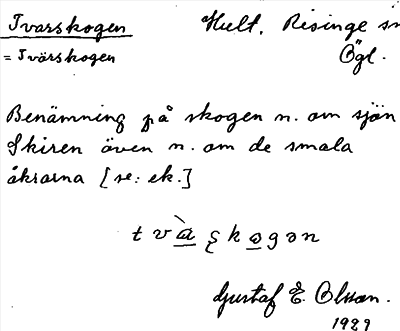 Tvarskogen Hult, Risinge sn
= Tvärskogen Ögl.
Benämning på skogen n. om sjön
Skiren även n. om de smala
åkrarna [se: ek.]
Gustaf E. Olsson.
1929